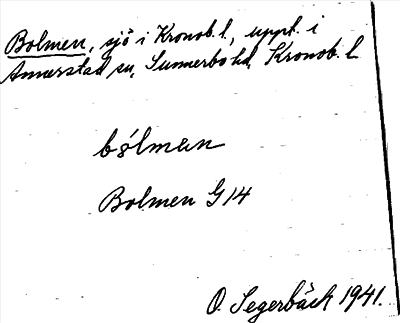 Bolmen, sjö i Kronob. l., uppt. i
Annerstad sn, Sunnerbo hd, Kronob. l.
bólman
Bolmen G 14
O. Segerbäck 1941.